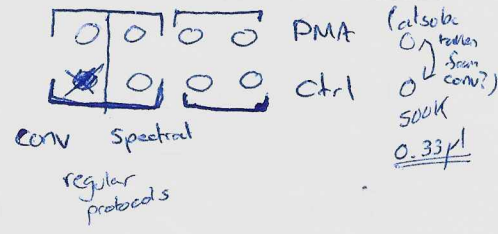 PMA
Ctrl
(also be
taken
from
conv?)
500K
0.33µl
conv spectral
regular
protocols